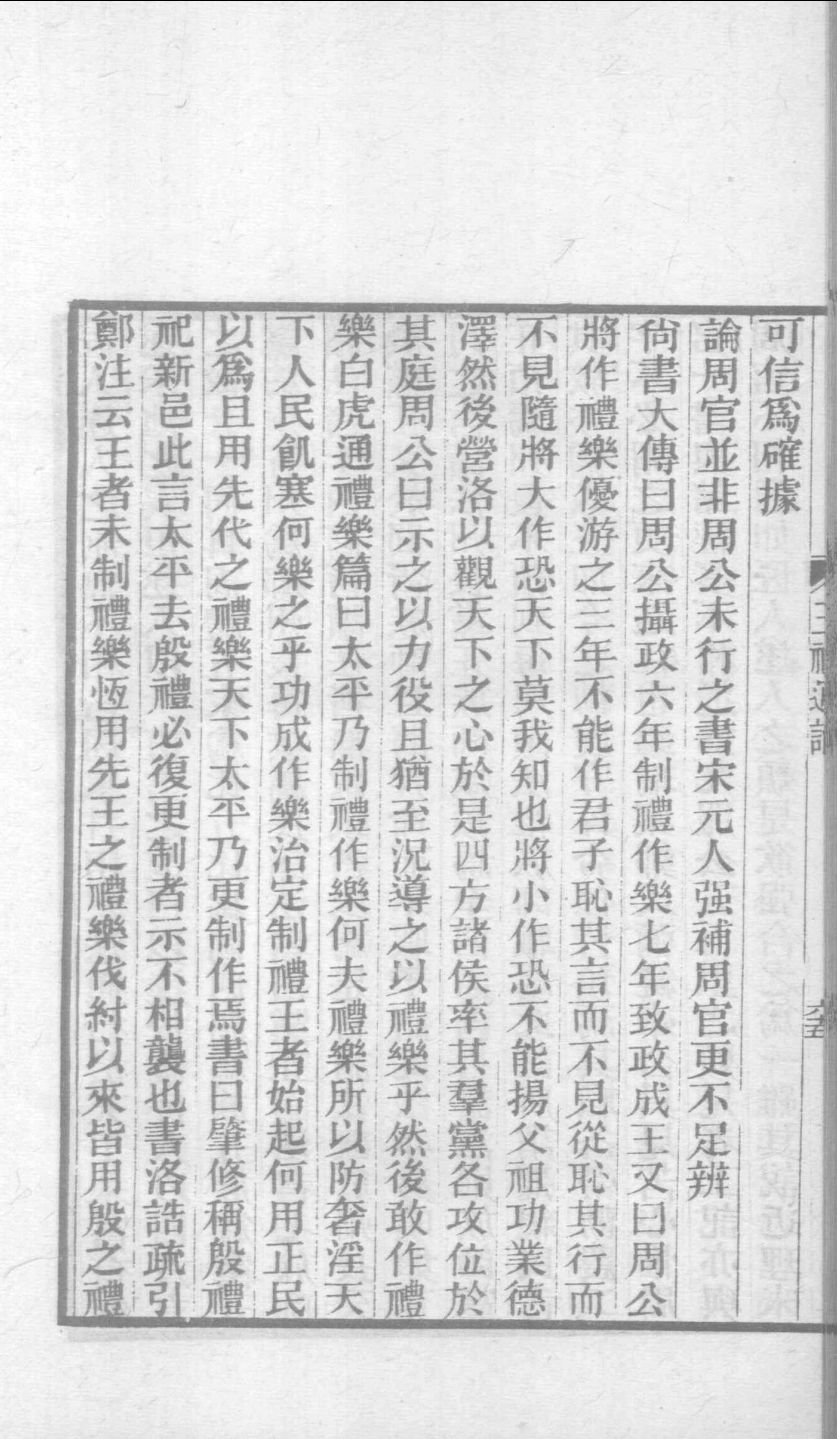 三禮通論
六五
可信爲確據
論周官並非周公未行之書宋元人强補周官更不足辨
尙書大傳曰周公攝政六年制禮作樂七年致政成王又曰周公
將作禮樂優游之三年不能作君子恥其言而不見從恥其行而
不見隨將大作恐天下莫我知也將小作恐不能揚父祖功業德
澤然後營洛以觀天下之心於是四方諸侯率其羣黨各攻位於
其庭周公曰示之以力役且猶至況導之以禮樂乎然後敢作禮
樂白虎通禮樂篇曰太平乃制禮作樂何夫禮樂所以防奢淫天
下人民飢寒何樂之乎功成作樂治定制禮王者始起何用正民
以爲且用先代之禮樂天下太平乃更制作焉書曰肇修稱殷禮
祀新邑此言太平去殷禮必復更制者示不相襲也書洛誥疏引
鄭注云王者未制禮樂恆用先王之禮樂伐紂以來皆用殷之禮